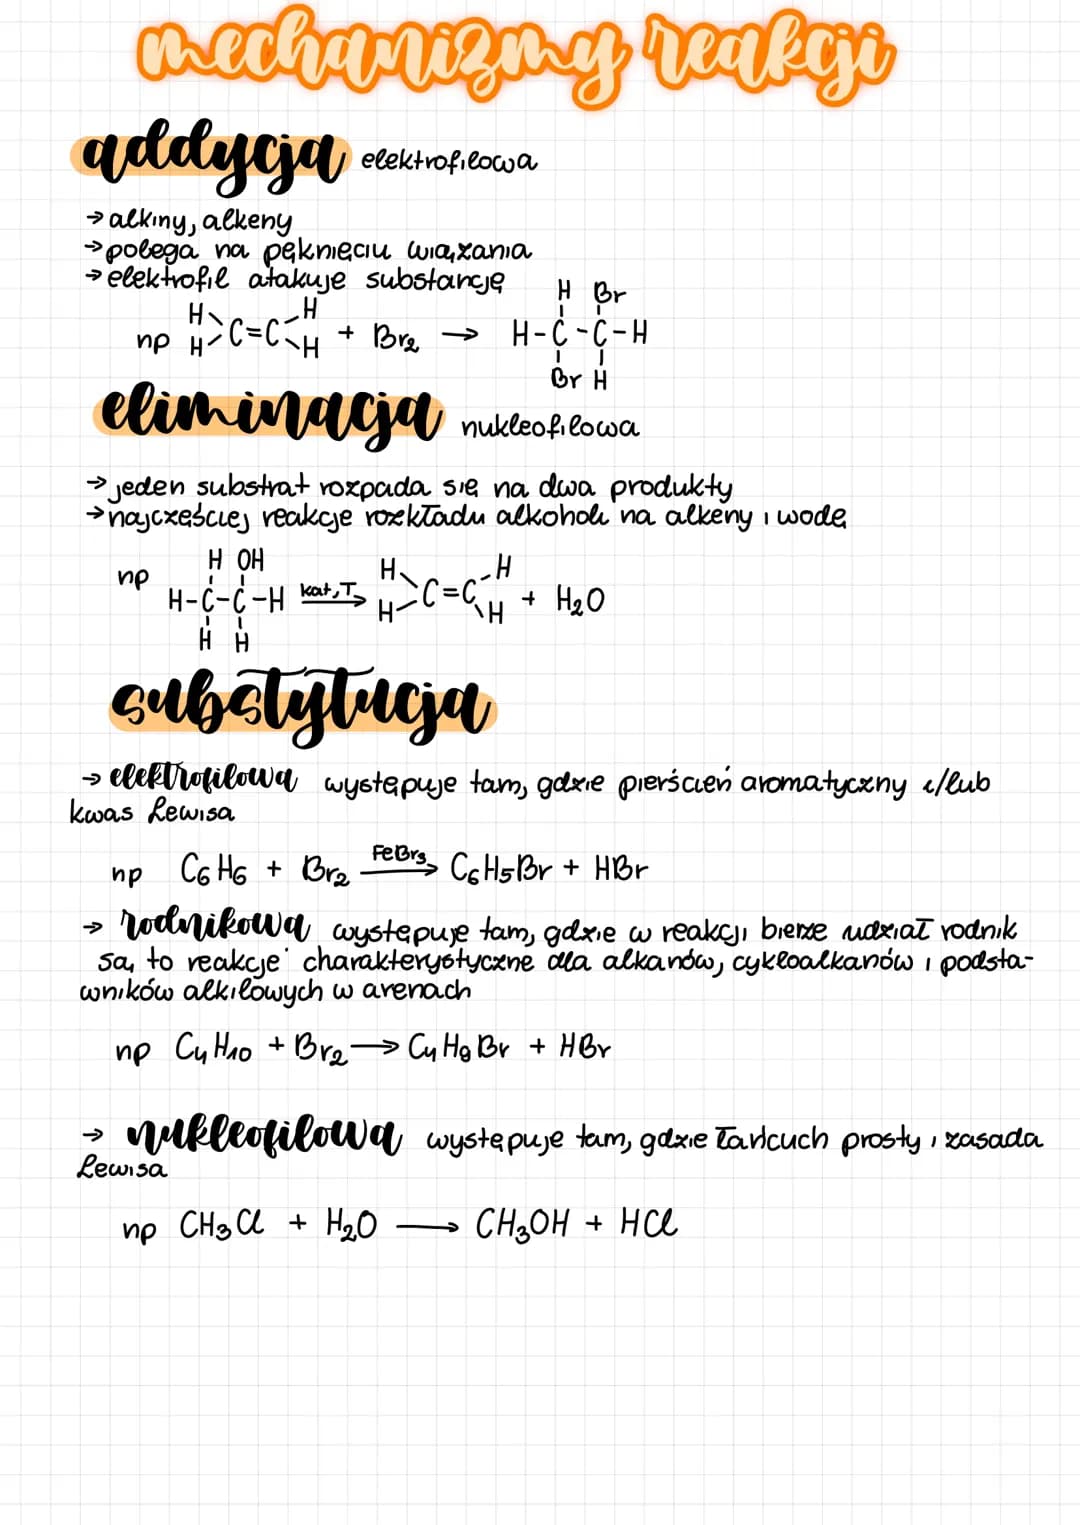 mechanizmy reakcji
addycja elektrofilowa
→ alkiny, alkeny
→ polega na pęknięciu wiązania
→ elektrofil atakuje substancję
H Br
H H
np C=C + Br2 → H-C-C-H
H H
Br H
eliminacja nukleofilowa
→ jeden substrat rozpada się na dwa produkty
→ najcześciej reakcje rozkładu alkoholi na alkeny i wodę
H OH
H H
np H-C-C-H kat,T→ C=C + H2O
H H
H H
substytucja
→ elektrofilowa występuje tam, gdzie pierścień aromatyczny i/lub
kwas Lewisa
np C6H6 + Br2 FeBr3→ C6H5Br + HBr
→ rodnikowa występuje tam, gdzie w reakcji bierze udział rodnik
są to reakcje charakterystyczne dla alkanów, cykloalkanów i podsta-
wników alkilowych w arenach
np C4H10 + Br2 → C4H9Br + HBr
→ nukleofilowa występuje tam, gdzie łańcuch prosty i zasada
Lewisa
np CH3Cl + H2O → CH3OH + HCl